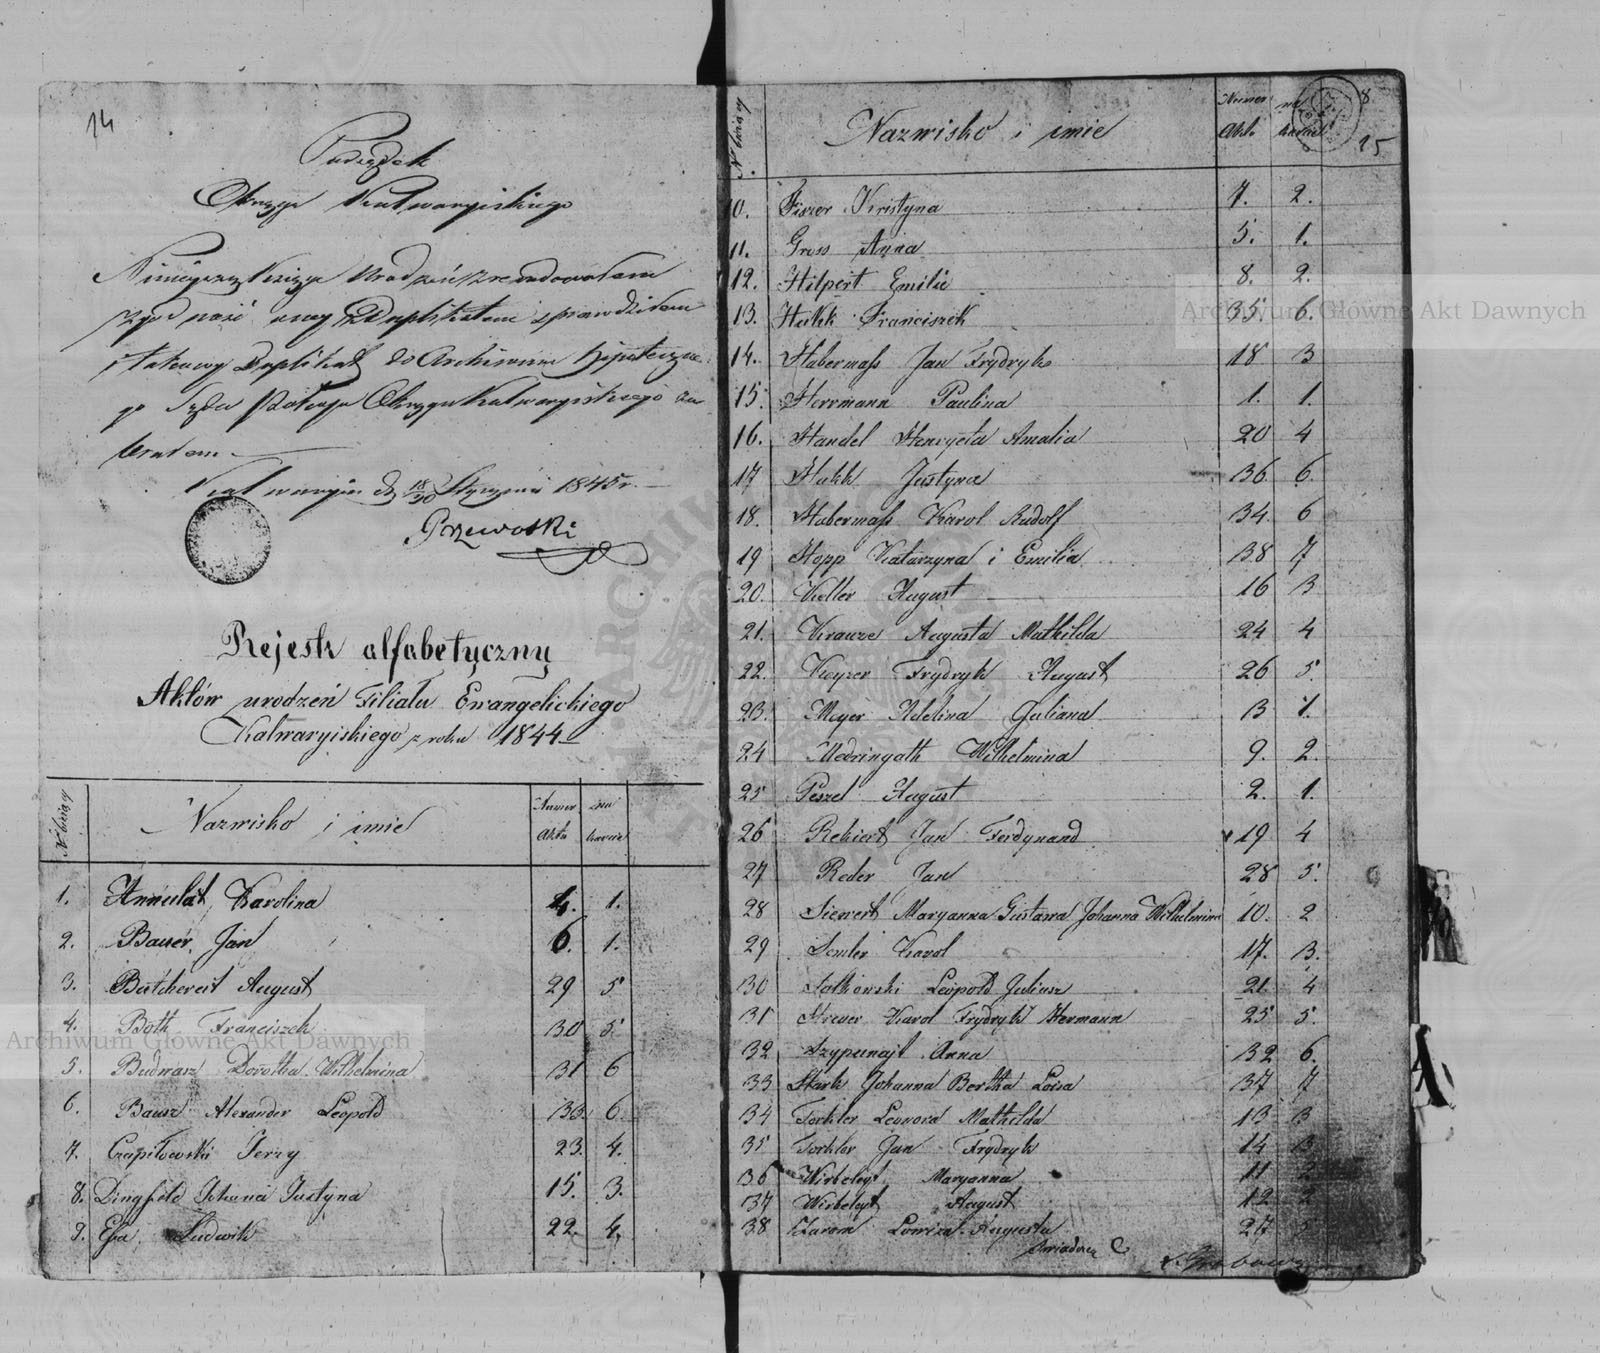 14
Okręgu Kalwaryjskiego
Niniejszą Księgę Urodzeń zrewidowałem
zgodność onej z Duplikatem sprawdziłem
i takowy Duplikat do Archiwum Hipoteczne
go Sądu Pokoju Okręgu Kalwaryjskiego za
brałem.
Kalwaryja d. 18/30 Stycznia 1845 r.
Rejestr alfabetyczny
Aktów urodzeń Filiału Ewangelickiego
Kalwaryiskiego z roku 1844
N bieżący Nazwisko i imie Numer Aktu
1. Annulat, Karolina 4. 1.
2. Bauer, Jan 6. 1.
3. Butchereit August 29 5
4. Both Franciszek 30 5.
5. Budwasz Dorotha Wilhelmina 31 6
6. Bausz Alexander Leopold 33 6.
7. Czapiłowski Jerzy 23. 4.
8. Dingfeld Justyna 15. 3.
9. Essa, Ludwik 22. 4.
8
25
N bieżący Nazwisko i imie Numer Aktu na karcie
10. Fiszer Kristyna 7. 2.
11. Gross Anna 5. 1.
12. Hilpert Emilie 8. 2.
13. Hukk Franciszek 35. 6.
14. Habermass Jan Frydryk 18 3
15. Herrmann Paulina 1. 1.
16. Handel Henryeta Amalia 20 4
17 Hukk Justyna 36 6.
18. Habermass Karol Rudolf 34. 6
19 Hopp Katarzyna i Emilia 38 7
20. Keller August 16 3.
21. Krauze Augusta Mathilda 24 4
22. Keyzer Frydryk August 26 5.
23. Meyer Adelina Juliana 3 1.
24 Medringath Wilhelmina 9. 2.
25 Peszel August 2. 1.
26 Rekiert Jan Ferdynand 19 4
27 Reder Jan 28 5.
28 Siewert Maryanna Gustawa Johanna Wilhelmina 10. 2
29 Semler Karol 17. 3.
30 Sotkowski Leopold Juliusz 21. 4
31 Strewer Karol Frydryk Hermann 25 5.
32 Szypereajt Anna 32 6.
33 Stark Johanna Bertha Loisa 37 7
34 Torkler Leonora Mathilda 13 3
35 Torkler Jan Frydryk 14 3
36 Wirbeleyt Maryanna 11 2
37 Wirbeleyt August 12 2
38 Lowiza Augusta 27 5
Archiwum Główne Akt Dawnych
Archiwum Główne Akt Dawnych